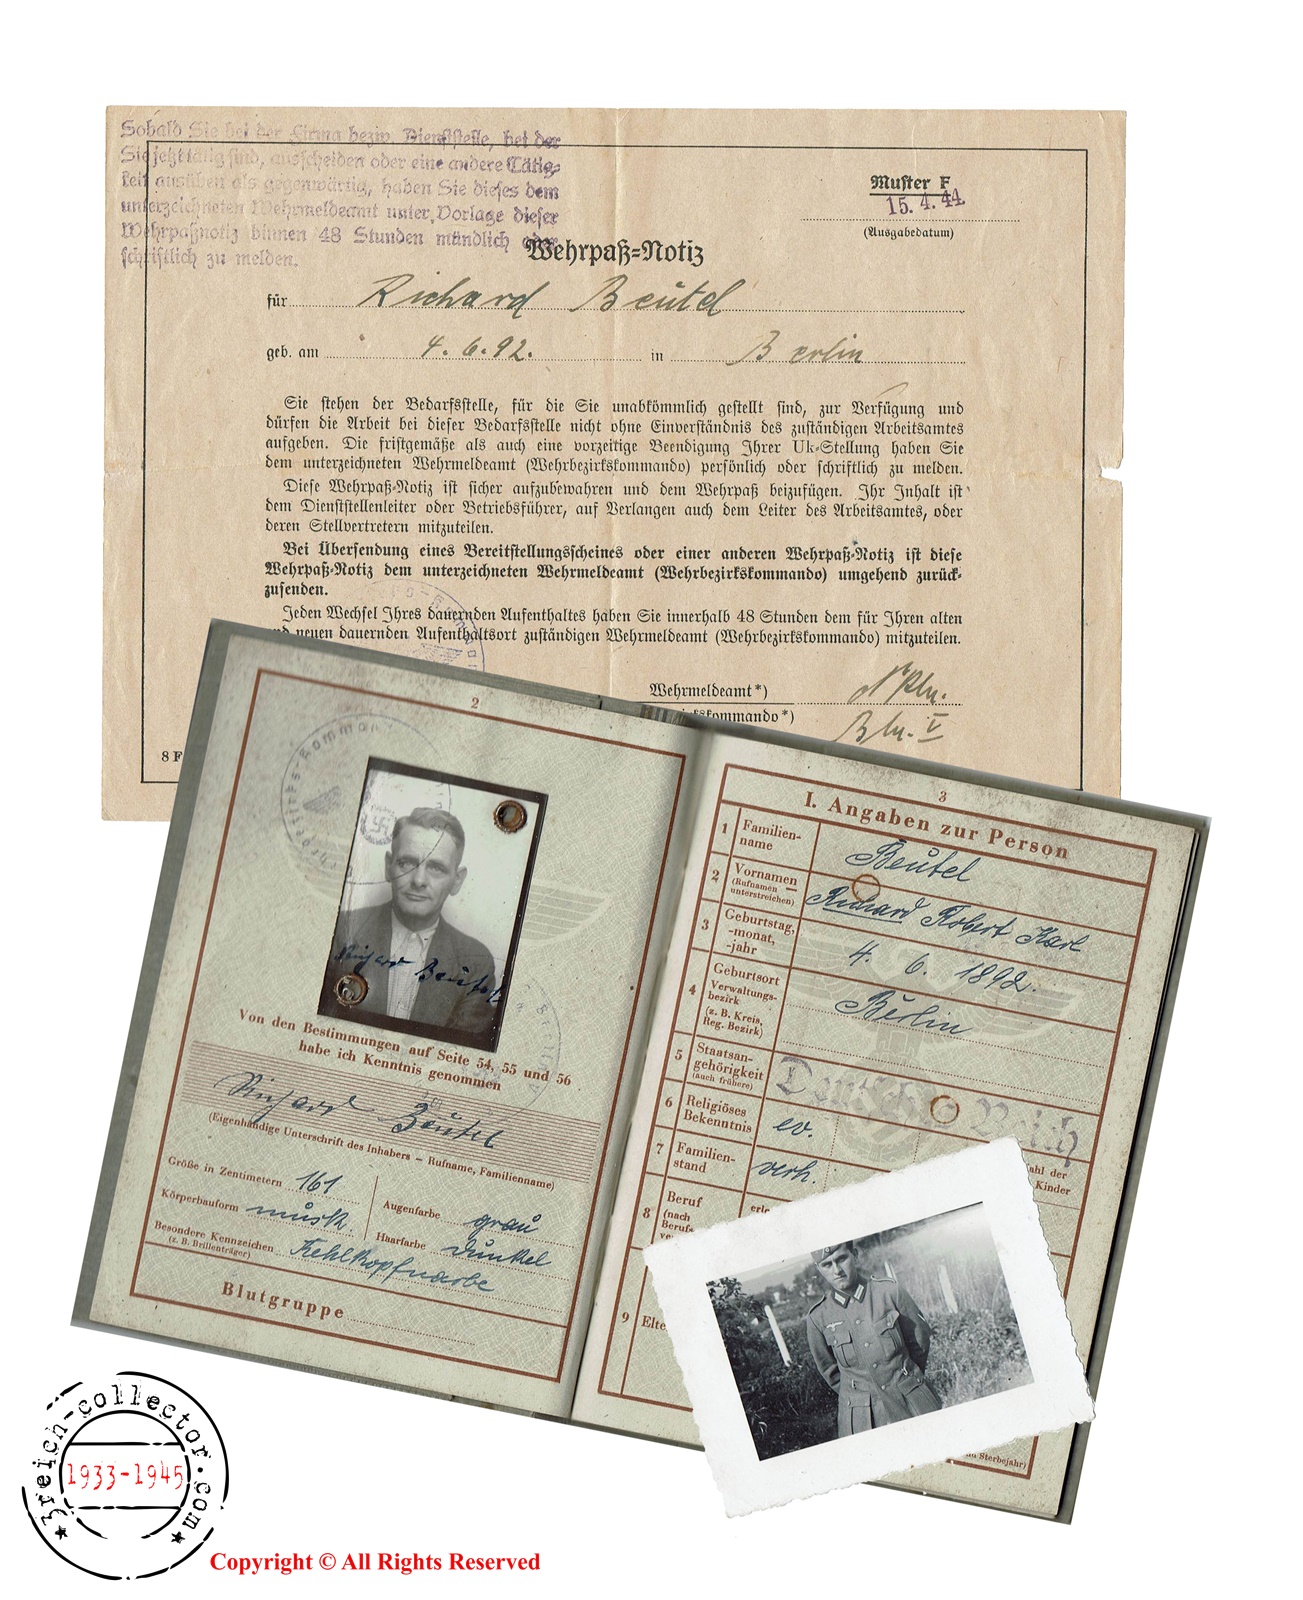 Sobald Sie bei der Firma bezw. Dienststelle, bei der
Sie jetzt tätig sind, ausscheiden oder eine andere Tätig-
keit ausüben als gegenwärtig, haben Sie dieses dem
unterzeichneten Wehrmeldeamt unter Vorlage dieser
Wehrpaßnotiz binnen 48 Stunden mündlich oder
schriftlich zu melden.
Muster F
15. 4. 44
(Ausgabedatum)
Wehrpaß=Notiz
für Richard Beutel
geb. am 4. 6. 92. in Berlin
Sie stehen der Bedarfsstelle, für die Sie unabkömmlich gestellt sind, zur Verfügung und
dürfen die Arbeit bei dieser Bedarfsstelle nicht ohne Einverständnis des zuständigen Arbeitsamtes
aufgeben. Die fristgemäße als auch eine vorzeitige Beendigung Ihrer Uk=Stellung haben Sie
dem unterzeichneten Wehrmeldeamt (Wehrbezirkskommando) persönlich oder schriftlich zu melden.
Diese Wehrpaß=Notiz ist sicher aufzubewahren und dem Wehrpaß beizufügen. Ihr Inhalt ist
dem Dienststellenleiter oder Betriebsführer, auf Verlangen auch dem Leiter des Arbeitsamtes, oder
deren Stellvertretern mitzuteilen.
Bei Übersendung eines Bereitstellungsscheines oder einer anderen Wehrpaß=Notiz ist diese
Wehrpaß=Notiz dem unterzeichneten Wehrmeldeamt (Wehrbezirkskommando) umgehend zurück=
zusenden.
Jeden Wechsel Ihres dauernden Aufenthaltes haben Sie innerhalb 48 Stunden dem für Ihren alten
und neuen dauernden Aufenthaltsort zuständigen Wehrmeldeamt (Wehrbezirkskommando) mitzuteilen.
Wehrmeldeamt*)
kommando*) Bln. V
8 F
2
Richard Beutel
Von den Bestimmungen auf Seite 54, 55 und 56
habe ich Kenntnis genommen
Richard Beutel
(Eigenhändige Unterschrift des Inhabers – Rufname, Familienname)
Größe in Zentimetern 161
Körperbauform musk.
Augenfarbe grau
Haarfarbe dunkel
Besondere Kennzeichen Kehlkopfnarbe
(z. B. Brillenträger)
Blutgruppe
3
I. Angaben zur Person
1 Familien-
name Beutel
2 Vornamen
(Rufnamen
unterstreichen) Richard Robert Karl
3 Geburtstag,
-monat,
-jahr 4. 6. 1892.
4 Geburtsort
Verwaltungs-
bezirk
(z. B. Kreis,
Reg. Bezirk) Berlin
5 Staatsan-
gehörigkeit
(auch frühere) Deutsches Reich
6 Religiöses
Bekenntnis ev.
7 Familien-
stand verh.
der
Kinder
8 Beruf
(nach
Berufs-
9
Sterbejahr)
3reich-collector.com
1933-1945
Copyright © All Rights Reserved